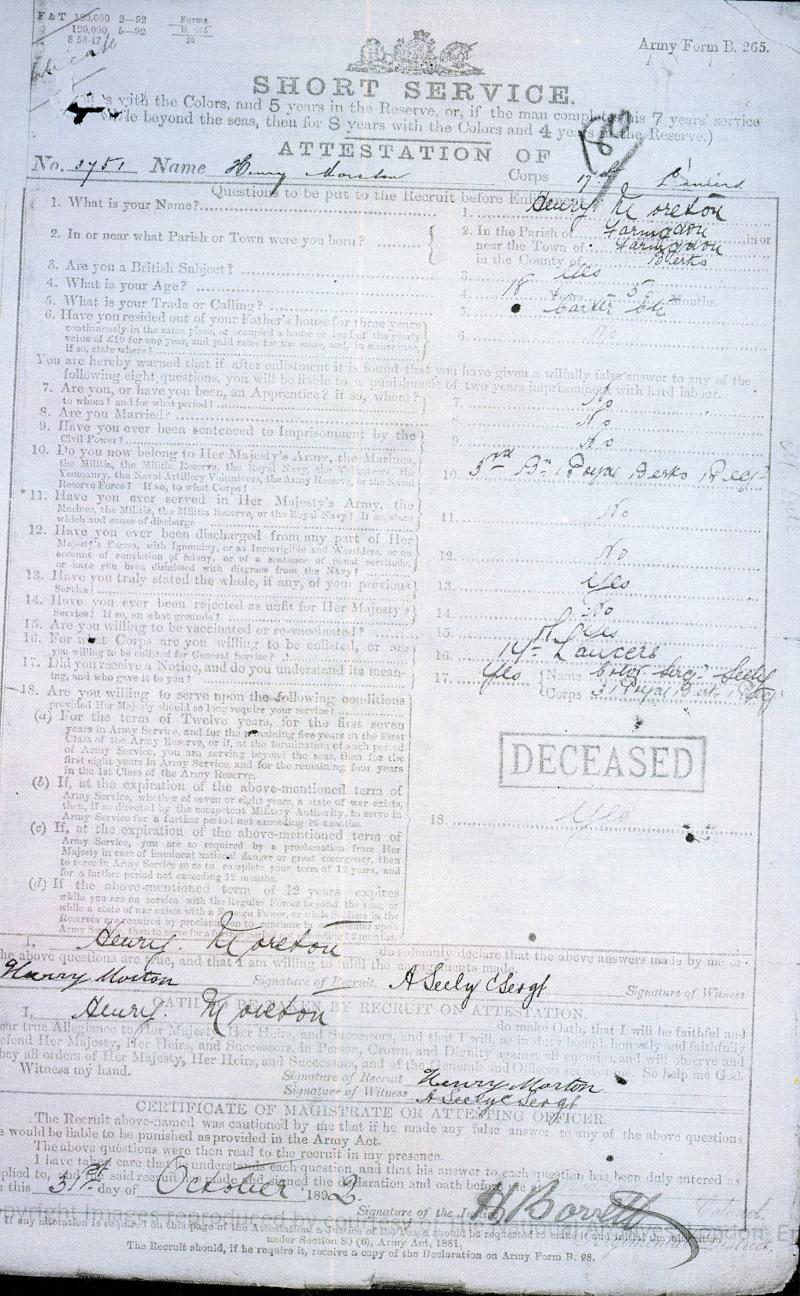 F & T 120,000 2—92
120,000 5—92
8 58-47
Forms
B. 265
26
Army Form B. 265.
SHORT SERVICE.
years with the Colors, and 5 years in the Reserve, or, if the man completes his 7 years' service
while beyond the seas, then for 8 years with the Colors and 4 years in the Reserve.)
ATTESTATION OF
No. 3751 Name Henry Moreton Corps 17th Lancers
Questions to be put to the Recruit before Enlistment.
1. What is your Name? 1. Henry Moreton
2. In or near what Parish or Town were you born? 2. In the Parish of Faringdon in or
near the Town of Faringdon
in the County of Berks
3. Are you a British Subject? 3. Yes
4. What is your Age? 4. 18 Years 5 Months.
5. What is your Trade or Calling? 5. Carter
6. Have you resided out of your Father's house for three years
continuously in the same place, or occupied a house or land of the yearly
value of £10 for one year, and paid rates for the same, and, in either case,
if so, state where? 6. No
You are hereby warned that if after enlistment it is found that you have given a wilfully false answer to any of the
following eight questions, you will be liable to a punishment of two years imprisonment with hard labour.
7. Are you, or have you been, an Apprentice? if so, where?
to whom? and for what period? 7. No
8. Are you Married? 8. No
9. Have you ever been sentenced to Imprisonment by the
Civil Power? 9. No
10. Do you now belong to Her Majesty's Army, the Marines,
the Militia, the Militia Reserve, the Royal Navy, the Volunteers, the
Yeomanry, the Naval Artillery Volunteers, the Army Reserve, or the Naval
Reserve Force? If so, to what Corps? 10. 3rd Bn. Royal Berks Regt
*11. Have you ever served in Her Majesty's Army, the
Marines, the Militia, the Militia Reserve, or the Royal Navy? If so, state
which and cause of discharge 11. No
12. Have you ever been discharged from any part of Her
Majesty's Forces, with Ignominy, or as Incorrigible and Worthless, or on
account of conviction of felony, or of a sentence of penal servitude,
or have you been dismissed with disgrace from the Navy? 12. No
13. Have you truly stated the whole, if any, of your previous
Service? 13. Yes
14. Have you ever been rejected as unfit for Her Majesty's
Service? If so, on what grounds? 14. No
15. Are you willing to be vaccinated or re-vaccinated? 15. Yes
16. For what Corps are you willing to be enlisted, or are
you willing to be enlisted for General Service? 16. 17th Lancers
17. Did you receive a Notice, and do you understand its mean-
ing, and who gave it to you? 17. Yes Name Color Sergt Seely
Corps 3/Royal Berks Regt
18. Are you willing to serve upon the following conditions
provided Her Majesty should so long require your service?
(a) For the term of Twelve years, for the first seven
years in Army Service, and for the remaining five years in the First
Class of the Army Reserve, or if, at the termination of such period
of Army Service, you are serving beyond the seas, then for the
first eight years in Army Service, and for the remaining four years
in the 1st Class of the Army Reserve.
DECEASED
(b) If, at the expiration of the above-mentioned term of
Army Service, whether of seven or eight years, a state of war exists,
then, if so directed by the competent Military Authority, to serve in
Army Service for a further period not exceeding 12 months.
18. Yes
(c) If, at the expiration of the above-mentioned term of
Army Service, you are so required by a proclamation from Her
Majesty in case of imminent national danger or great emergency, then
to serve in Army Service so as to complete your term of 12 years, and
for a further period not exceeding 12 months.
(d) If the above-mentioned term of 12 years expires
while you are on service with the Regular Forces beyond the seas, or
while a state of war exists with a Foreign Power, or while Soldiers in the
Reserves are required by proclamation to continue in or re-enter upon
Army Service, then to serve for a further period not exceeding 12 months.
I, Henry Moreton do solemnly declare that the above answers made by me to
the above questions are true, and that I am willing to fulfil the engagements made.
Henry Morton Signature of Recruit. A Seely C Sergt Signature of Witness
OATH TO BE TAKEN BY RECRUIT ON ATTESTATION.
I, Henry Moreton do make Oath, that I will be faithful and
bear true Allegiance to Her Majesty, Her Heirs, and Successors, and that I will, as in duty bound, honestly and faithfully
defend Her Majesty, Her Heirs, and Successors, in Person, Crown, and Dignity against all enemies, and will observe and
obey all orders of Her Majesty, Her Heirs, and Successors, and of the Generals and Officers set over me. So help me God.
Witness my hand.
Signature of Recruit Henry Morton
Signature of Witness A Seely C Sergt
CERTIFICATE OF MAGISTRATE OR ATTESTING OFFICER.
The Recruit above-named was cautioned by me that if he made any false answer to any of the above questions
he would be liable to be punished as provided in the Army Act.
The above questions were then read to the recruit in my presence.
I have taken care that he understands each question, and that his answer to each question has been duly entered as
replied to, and the said recruit has made and signed the declaration and oath before me at
on this 31st day of October 1892.
Signature of the Justice H Borrett Colonel
Copyright Images reproduced by courtesy of
If any alteration is required on this page of the Attestation, a Justice of the Peace should be requested to make it and initial the alteration
under Section 80 (6), Army Act, 1881.
The Recruit should, if he require it, receive a copy of the Declaration on Army Form B. 98.